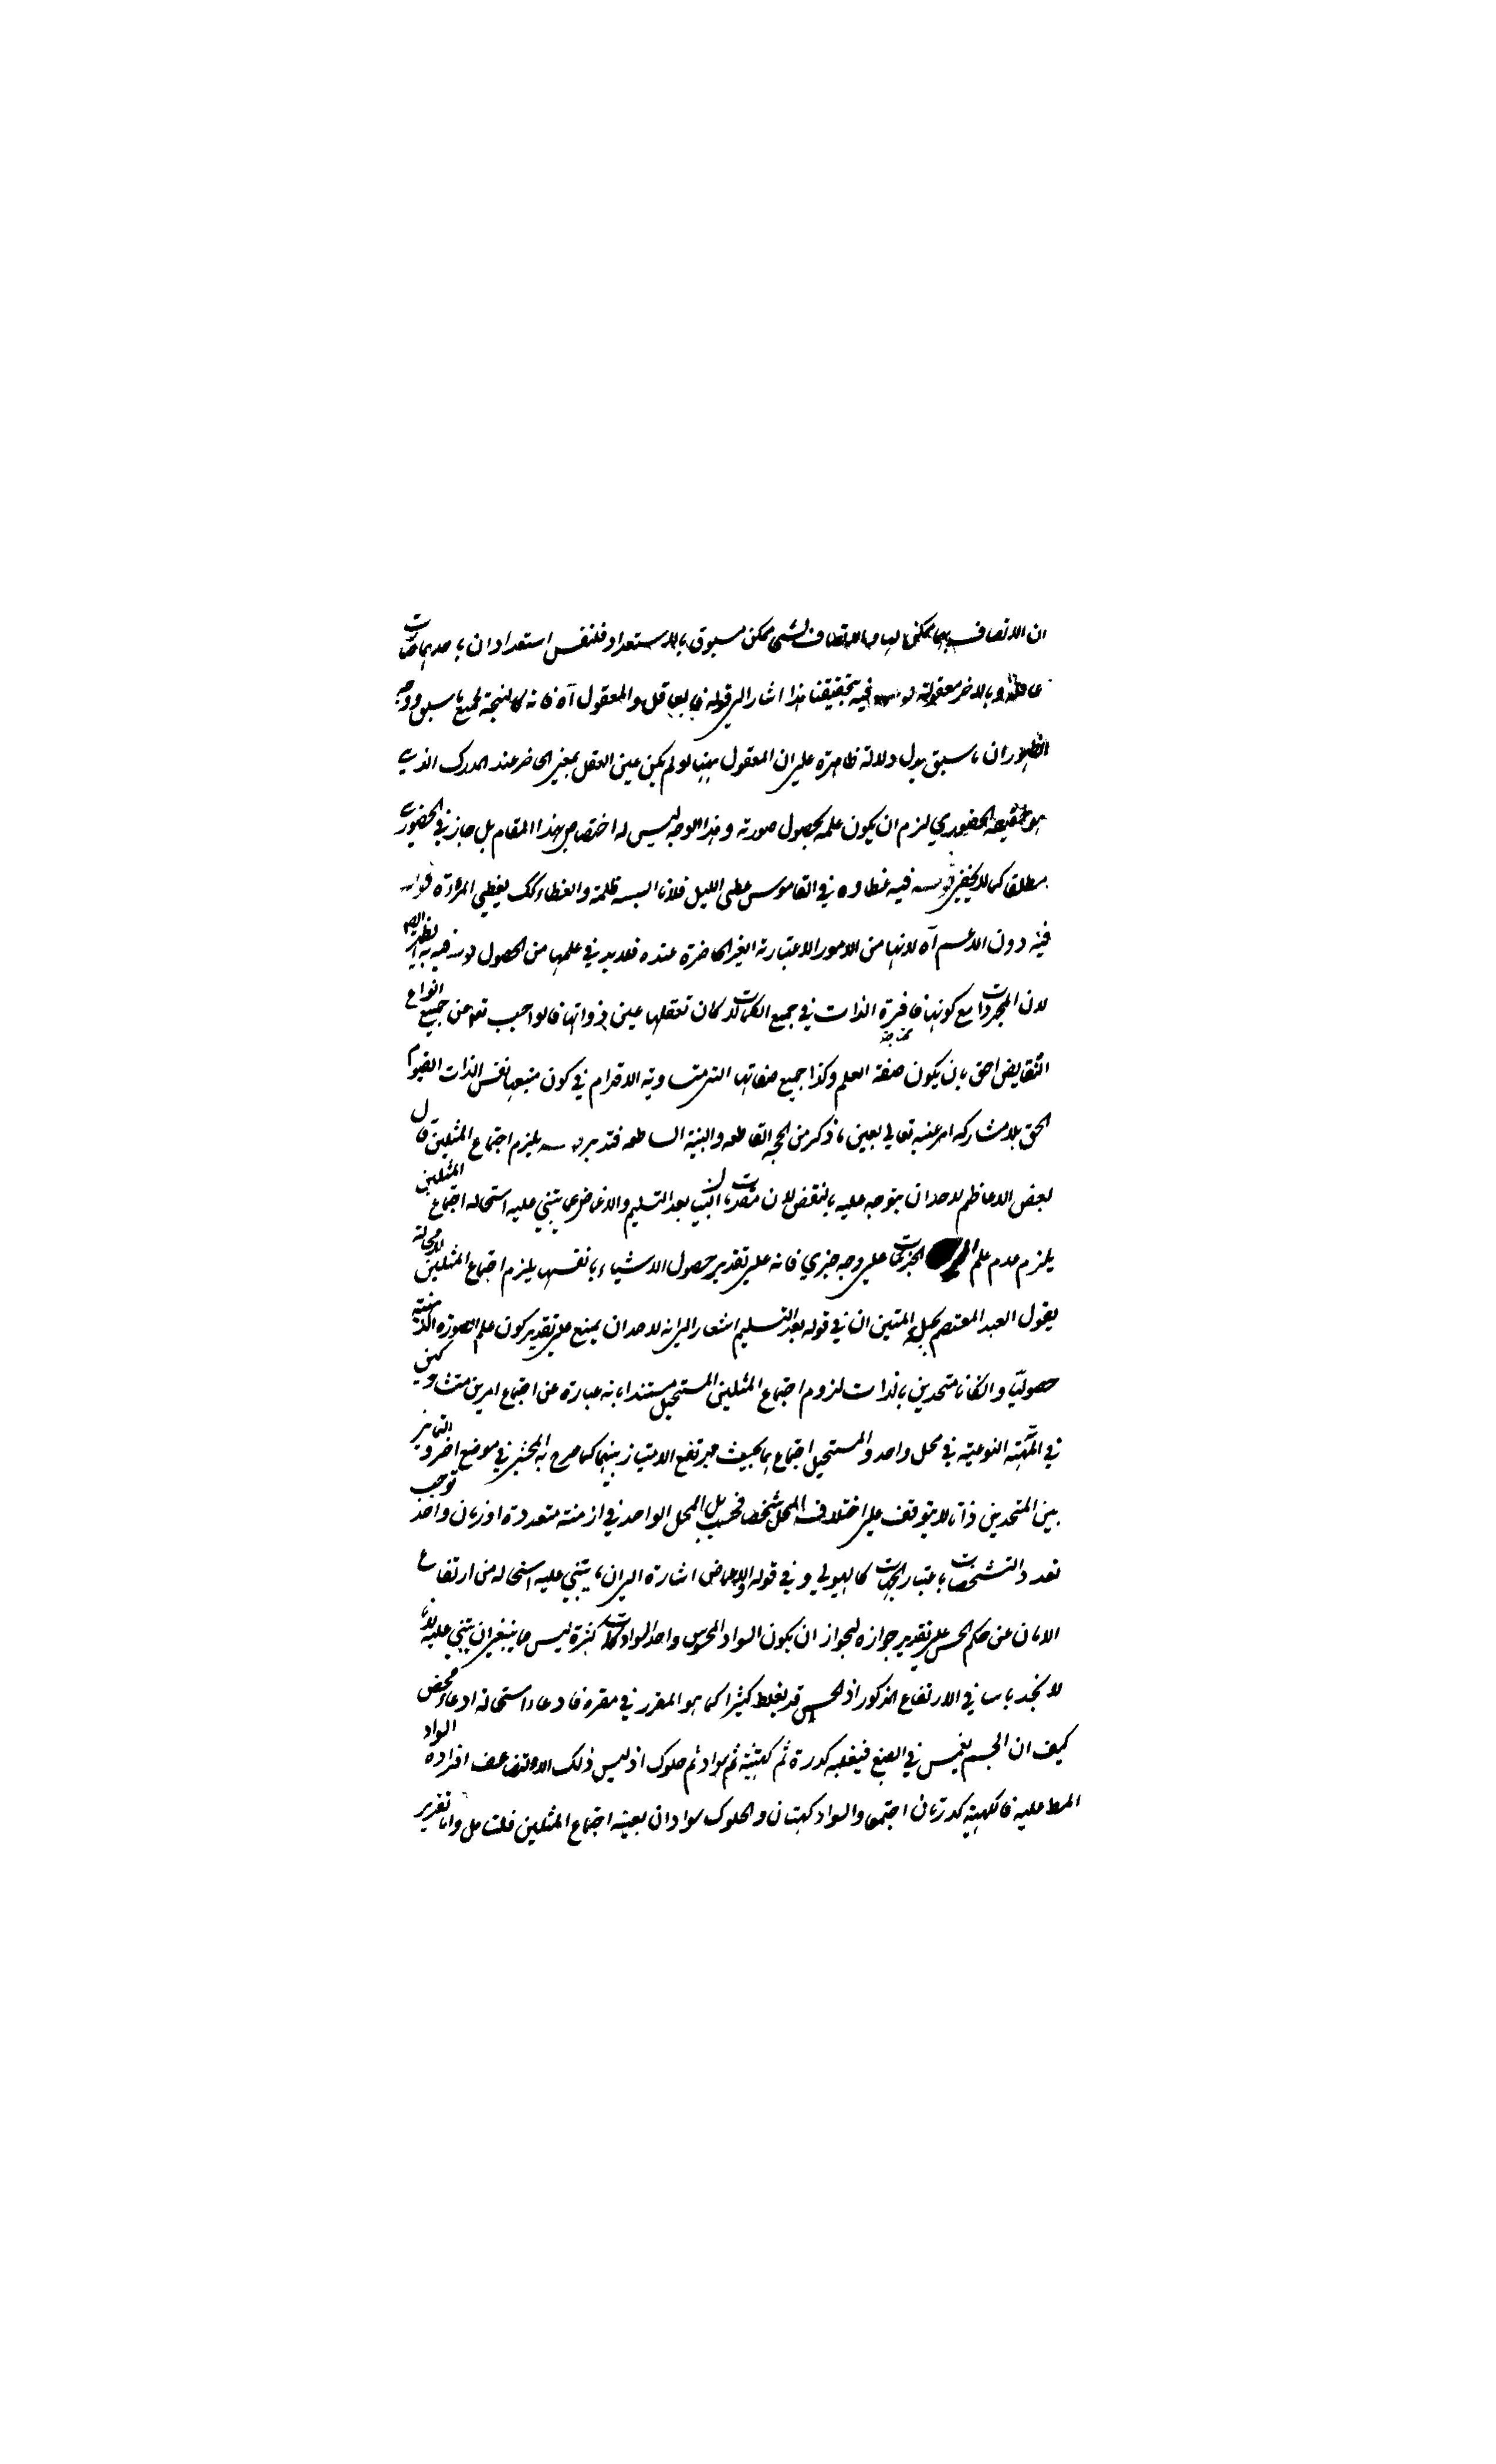 ان الاتصاف بهما ممكن لها والاتصاف لشئ ممكن مسبوق بالاستعداد فللنفس استعدادان باحدهما صارت
عاقلة وبالاخر معقولة قوله فيه تحقيقنا هذا اشار الى قوله فالعاقل والمعقول آه فانه كالنتيجة لجميع ما سبق ووجه
الظهور ان ما سبق يدل دلالة ظاهرة على ان المعقول ههنا لو لم يكن عين العقل بمعنى الحاضر عند المدرك الذي
هو حقيقة الحضوري لزم ان يكون علمه بحصول صورته وهذا الوجه ليس له اختصاص بهذا المقام بل جاز في الحضوري
مطلقا كما لا يخفى قوله فيه غطاوه في القاموس غطى الليل فلانا البسه ظلمته والغطاء ككساء ما يغطي المرءة قوله
فيه دون الاعم آه لانها من الامور الاعتبارية الغير الحاضرة عنده فلابد في علمها من الحصول قوله فيه بالنظر
لان المجردات مع كونها فاقرة الذات في جميع الكمالات لما كان تعقلها عين ذواتها فالواجب تعالى عن جميع انواع
النقايض احق بان يكون صفة العلم وكذا جميع صفاتها المتساوية الاقدام في كون منبعها نفس الذات القيوم
الحق بلا مشاركة امر عنه تعالى بعين ما ذكر من الحجة القاطعة والبينة الساطعة فتدبر قوله يلزم اجتماع المثلين قال
بعض الاعاظم لاحد ان يتوجه عليه بالنقض لان مقدمات البيان بعد التسليم والاغماض عما يبتني عليه استحالة اجتماع المثلين
يلزم عدم علم الجزئيات على وجه جزئي فانه على تقدير حصول الاشياء بانفسها يلزم اجتماع المثلين لا محالة
يقول العبد المعتصم بحبل الله المتين ان في قوله بعد التسليم اشعار الى انه لاحد ان يمنع على تقدير كون علم الصورة الذهنية
حصوليا وان كانا متحدين بالذات لزوم اجتماع المثلين المستحيل مستندا بانه عبارة عن اجتماع امرين متشاركين
في المهية النوعية في محل واحد والمستحيل اجتماعهما بحيث يرتفع الامتياز بينهما كما صرح به المحشي في موضع اخر والتمايز
بين المتحدين ذاتا لا يتوقف على اختلاف المحل شخصا فحسب بل المحل الواحد في ازمنة متعددة او زمان واحد توجب
تعدد التشخصات باعتبار الجهات كالهيولى وفي قوله والاغماض اشارة الى ان ما يبتني عليه استحالة من ارتفاع
الامان عن حكم الحس على تقدير جوازه لجواز ان يكون السواد المحسوس واحدا سوادات كثيرة ليس ما ينبغي ان يبتني عليه فانا
لا نجد باسا في الارتفاع المذكور اذ الحس قد يغلط كثيرا كما هو المقرر في مقره فادعاء استحالته ادعاء محض
كيف ان الجسم يغمس في الصبغ فيغلبه كدرة ثم كهتبية ثم سواد ثم حلوك اذ ليس ذلك الا لتضاعف افراد السواد
المطـ عليه فالكهبة كدرتان اجتمعا والسواد كهبتان والحلوك سوادان بعينه اجتماع المثلين فليتامل واما تقرير